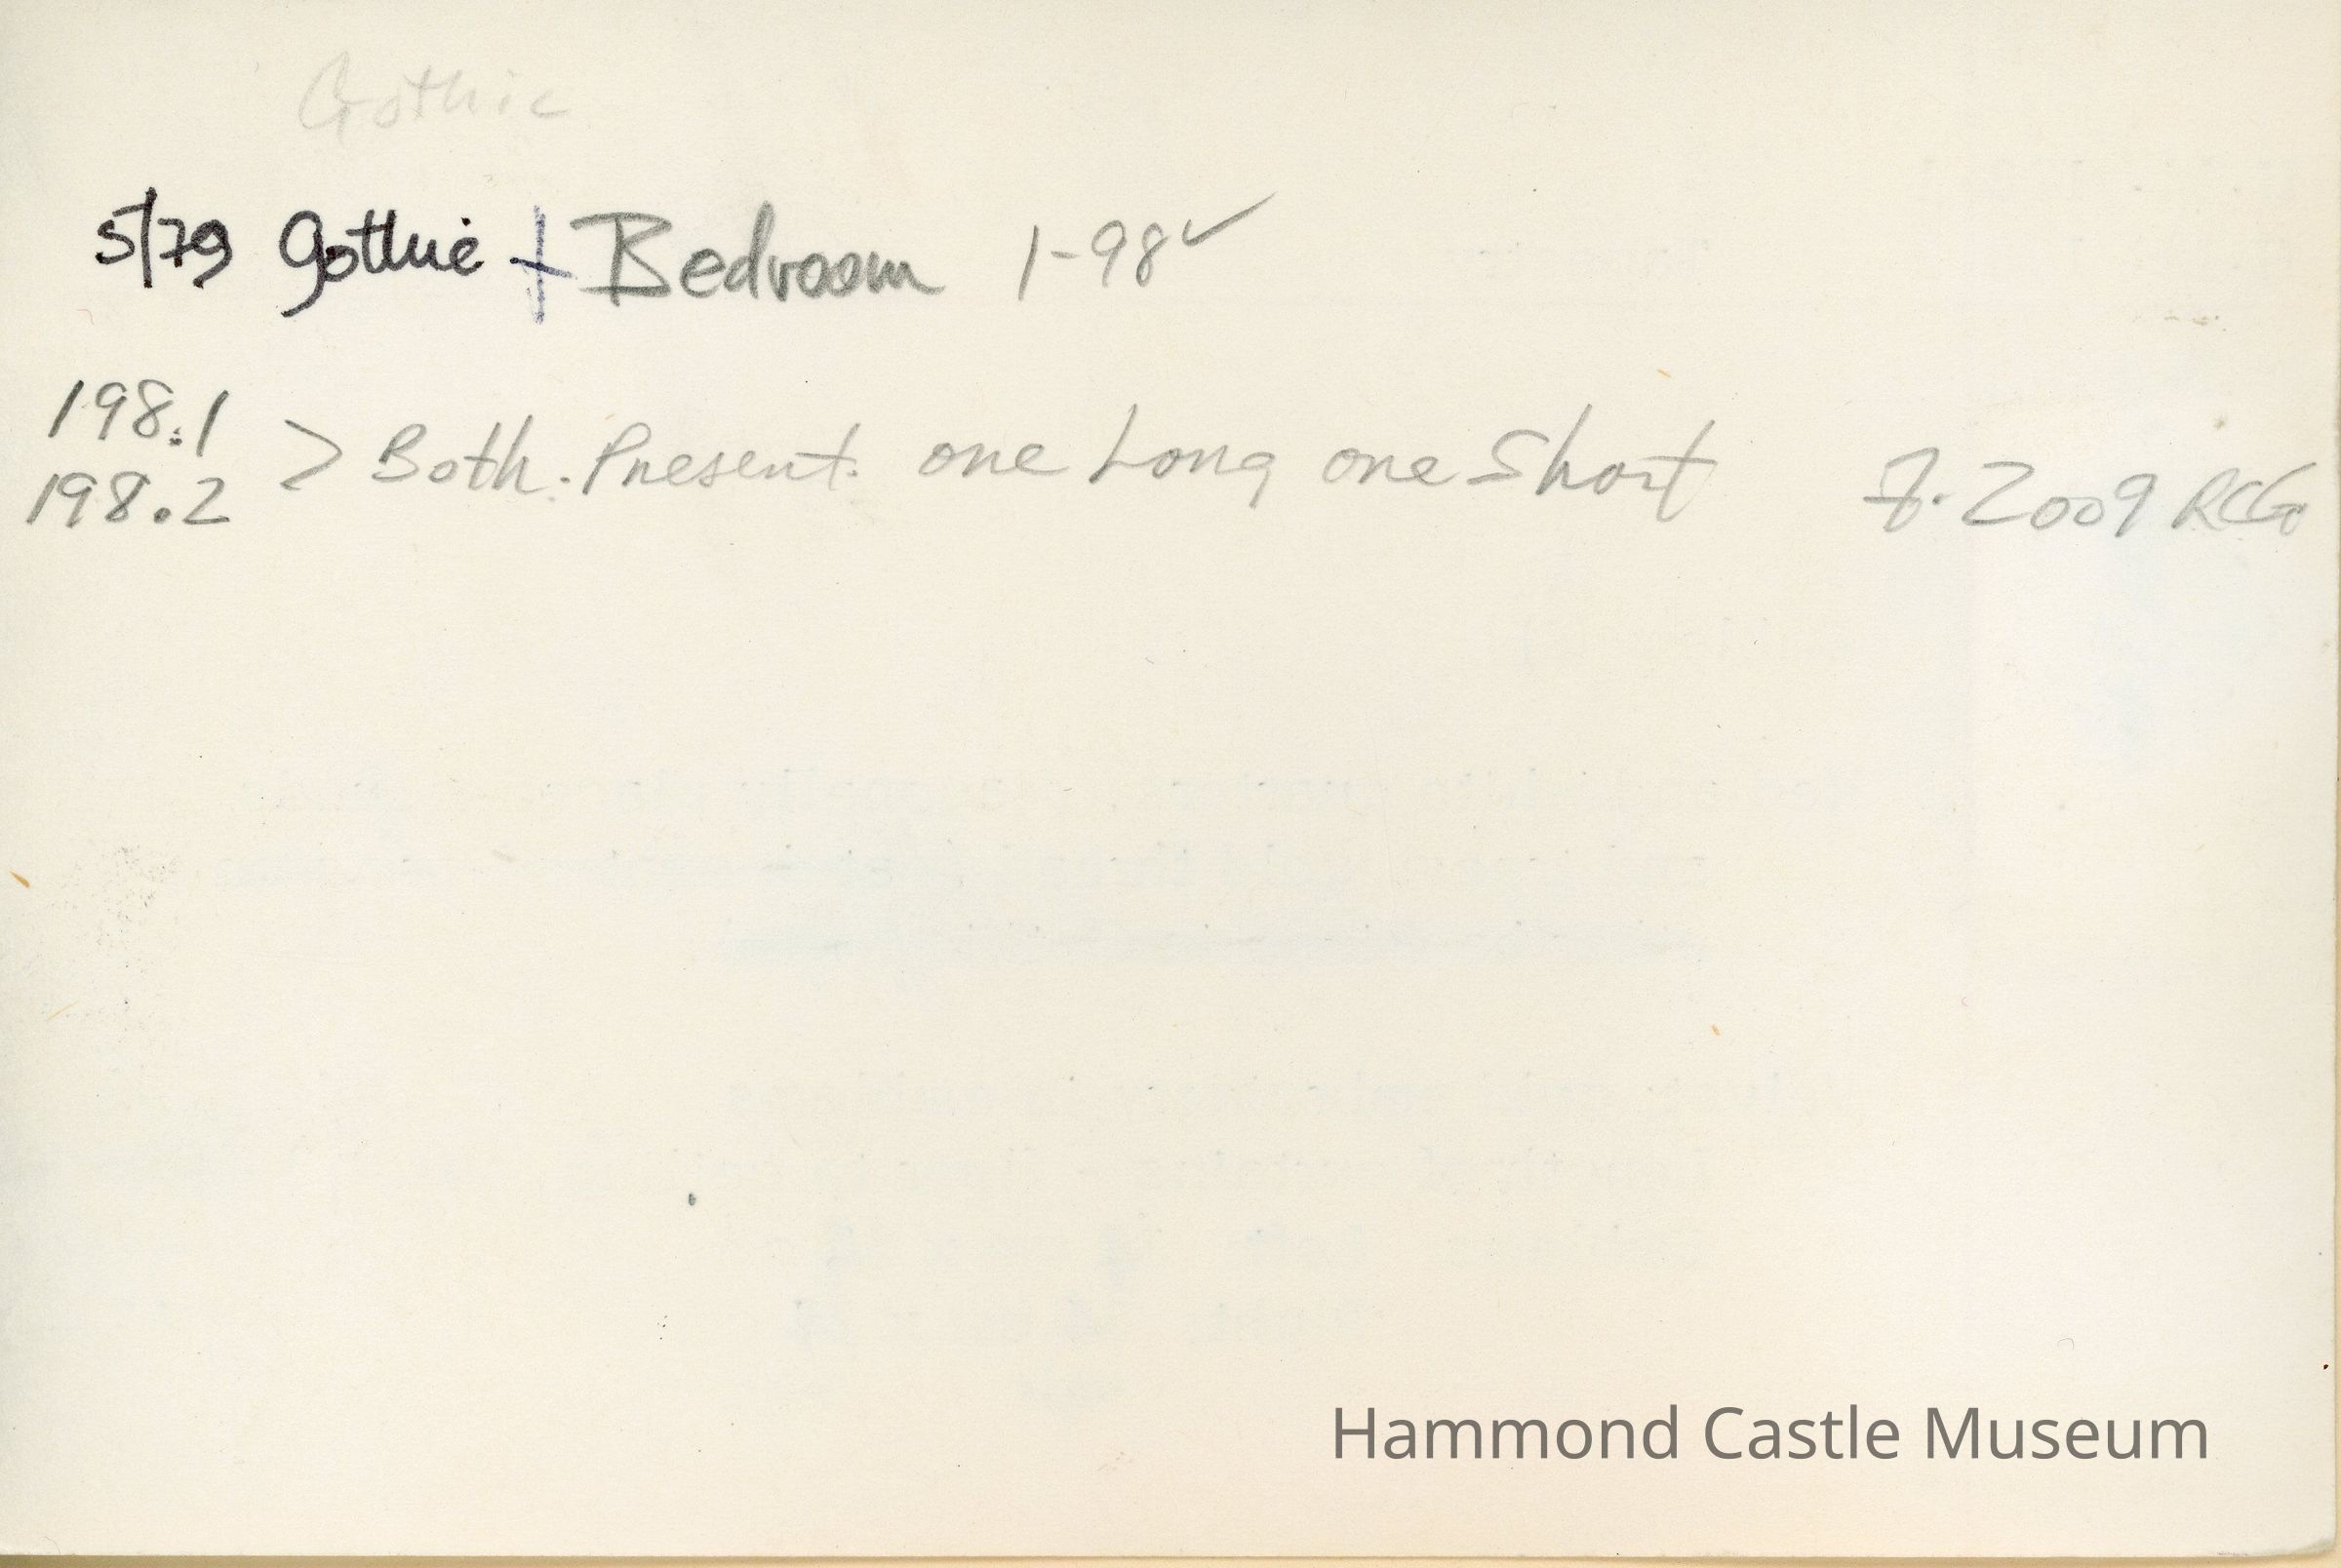 Gothic
5/79 Gothic + Bedroom 1-98✓
198.1
198.2 > Both. Present. one Long one Short 7. 2009 RCG
Hammond Castle Museum